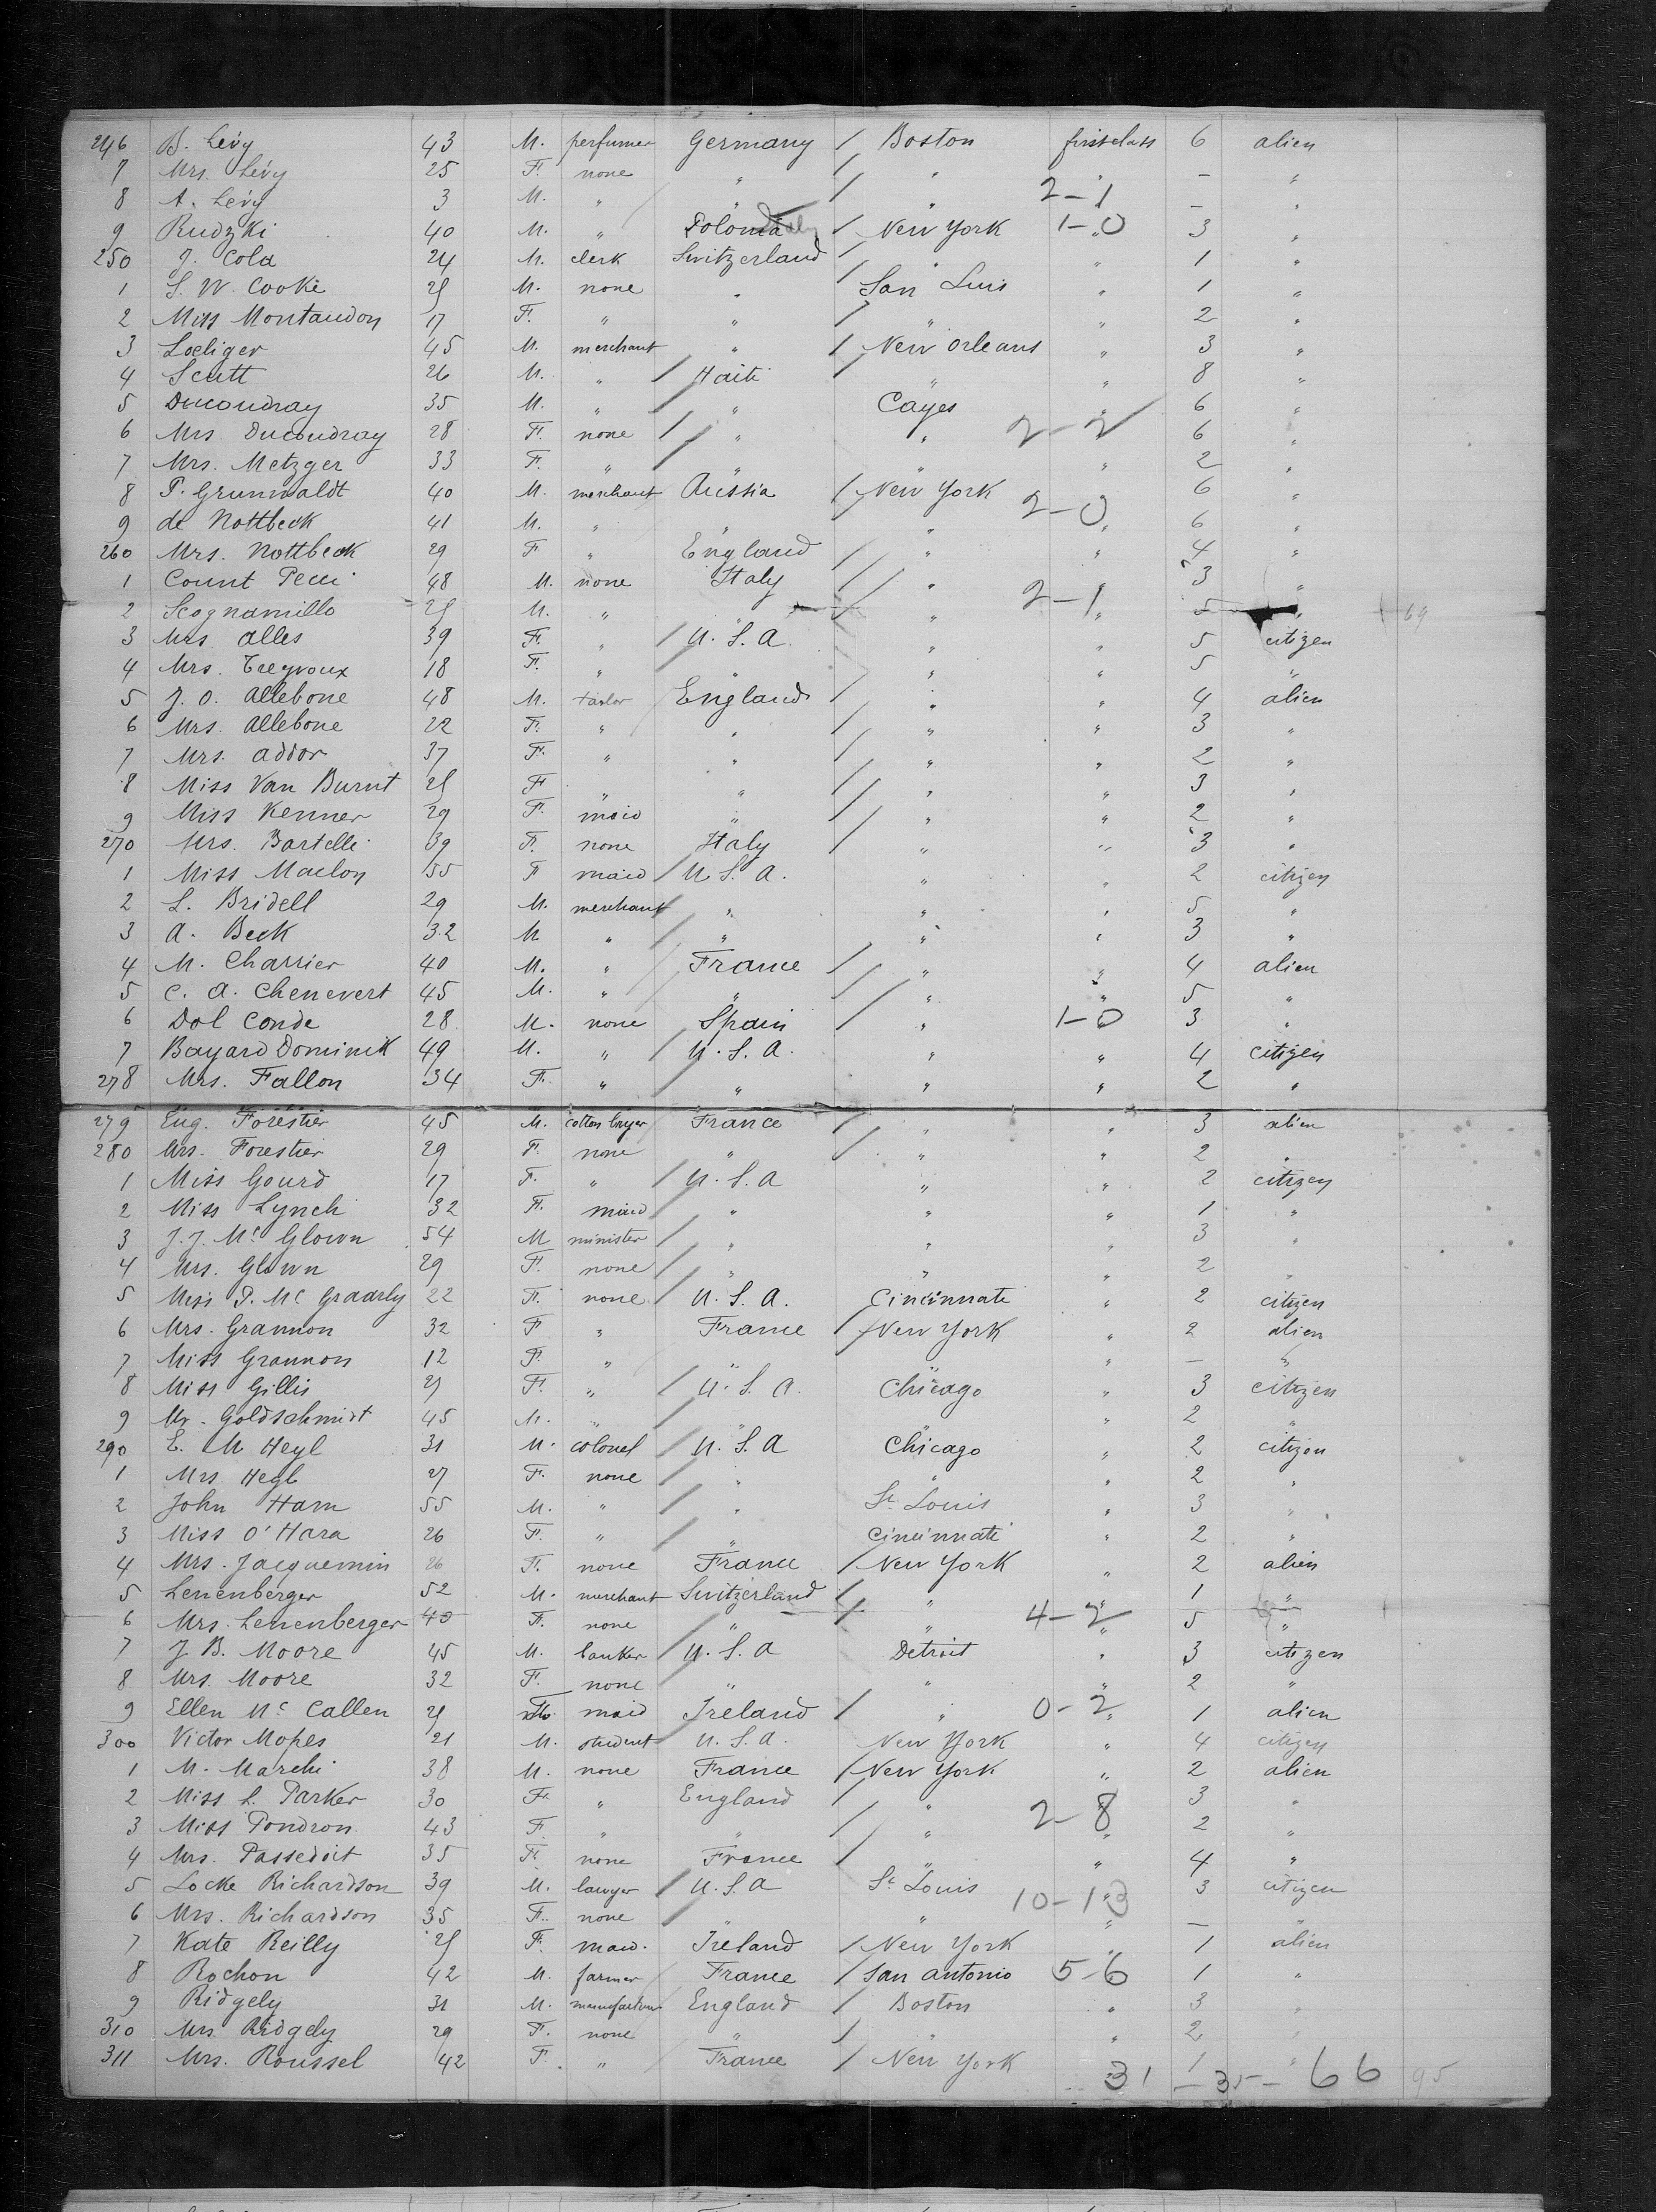 246 B. Lévy 43 M. perfumer Germany / Boston firstclass 6 alien
7 Mrs. Lévy 25 F. none " / " " — "
8 A. Lévy 3 M. " " / " 2-1 — "
9 Rudzki 40 M. " Polonia / New York 1-0 " 3 "
250 J. Cola 24 M. clerk Switzerland / " " 1 "
1 S. W. Cooke M. none " / San Luis " 1 "
2 Miss Montaudon 17 F. " " / " " 2 "
3 Loeliger 45 M. merchant " / New Orleans " 3 "
4 Scutt 26 M. " / Haiti / " " 8 "
5 Ducoudray 35 M. " / " Cayes " 6 "
6 Mrs. Ducoudray 28 F. none / / " " 2-2 6 "
7 Mrs. Metzger 33 F. " / " " " 2 "
8 P. Grunwaldt 40 M. merchant Russia / New York 6 "
9 de Nottbeck 41 M. " " " 2-0 " 6 "
260 Mrs. Nottbeck 29 F " England / " " 4 "
1 Count Pecci 48 M. none Italy / " 3 "
2 Scognamillo M. " / " 2-1 " 5 " 69
3 Mrs Alles 39 F. " / U.S.A. " " 5 citizen
4 Mrs. Tregroux 18 F. " / " " " 5 "
5 J. O. Allebone 48 M. tailor / England / " " 4 alien
6 Mrs. Allebone 22 F. " " / " " 3 "
7 Mrs. Addor 37 F. " " / " " 2 "
8 Miss Van Burnt F " " / " " 3 "
9 Miss Kenner 29 F. maid " / " " 2 "
270 Mrs. Bartelli 39 F. none Italy / " " 3 "
1 Miss Maclon 55 F maid / U.S.A. " " 2 citizen
2 S. Bridell 29 M. merchant / " " " 5 "
3 A. Beck 32 M " / " " " 3 "
4 M. Charrier 40 M. " / France / " " 4 alien
5 C. A. Chenevert 45 M. " " / " " 5 "
6 Dol Conde 28 M. none Spain / " 1-0 3 "
7 Bayard Dominik 49 M. " / U.S.A. " " 4 citizen
278 Mrs. Fallon 34 F. " / " " " 2 "
279 Eug. Forestier 45 M. cotton buyer France / " " 3 alien
280 Mrs. Forestier 29 F. none " / " " 2 "
1 Miss Gourd 17 F. " / U.S.A " " 2 citizen
2 Miss Lynch 32 F. maid / " " " 1 "
3 J. J. Mc Glown 54 M minister / " " " 3 "
4 Mrs. Glown 29 F. none / " " " 2 "
5 Miss P. Mc Graarly 22 F. none / U.S.A. Cincinnati " 2 citizen
6 Mrs. Grannon 32 F " France / New York " 2 alien
7 Miss Grannon 12 F. " " " " — "
8 Miss Gillis F. " / U.S.A. Chicago " 3 citizen
9 Mr. Goldschmidt 45 M. " / " " " 2 "
290 E. M Heyl 31 M. colonel / U.S.A Chicago " 2 citizen
1 Mrs. Heyl 27 F. none / " " " 2 "
2 John Ham 55 M. " / " St. Louis " 3 "
3 Miss O'Hara 26 F. " / " Cincinnati " 2 "
4 Mrs. Jacquemin 26 F. none France / New York " 2 alien
5 Lenenberger 52 M. merchant Switzerland / " " 1 "
6 Mrs. Lenenberger 40 F. none " / " 4-2 " 5 "
7 J B. Moore 45 M. banker / U.S.A Detroit " 3 citizen
8 Mrs. Moore 32 F. none / " " " 2 "
9 Ellen Mc Callen maid Ireland / " 0-2 " 1 alien
300 Victor Mopes 21 M. student / U.S.A. New York " 4 citizen
1 M. Marchi 38 M. none France / New York " 2 alien
2 Miss L. Parker 30 F. " England / " 3 "
3 Miss Pondron 43 F. " " / " 2-8 " 2 "
4 Mrs. Passedoit 35 F. none France / " " 4 "
5 Locke Richardson 39 M. lawyer / U.S.A St. Louis 3 citizen
6 Mrs. Richardson 35 F. none / " " 10-13 " — "
7 Kate Reilly F. maid. Ireland / New York " 1 alien
8 Rochon 42 M. farmer / France / San Antonio 5-6 1 "
9 Ridgely 31 M. England / Boston " 3 "
310 Mrs Ridgely 29 F. none " / " " 2 "
311 Mrs. Roussel 42 F. " / France / New York 1 "
31 - 35 - 66 95